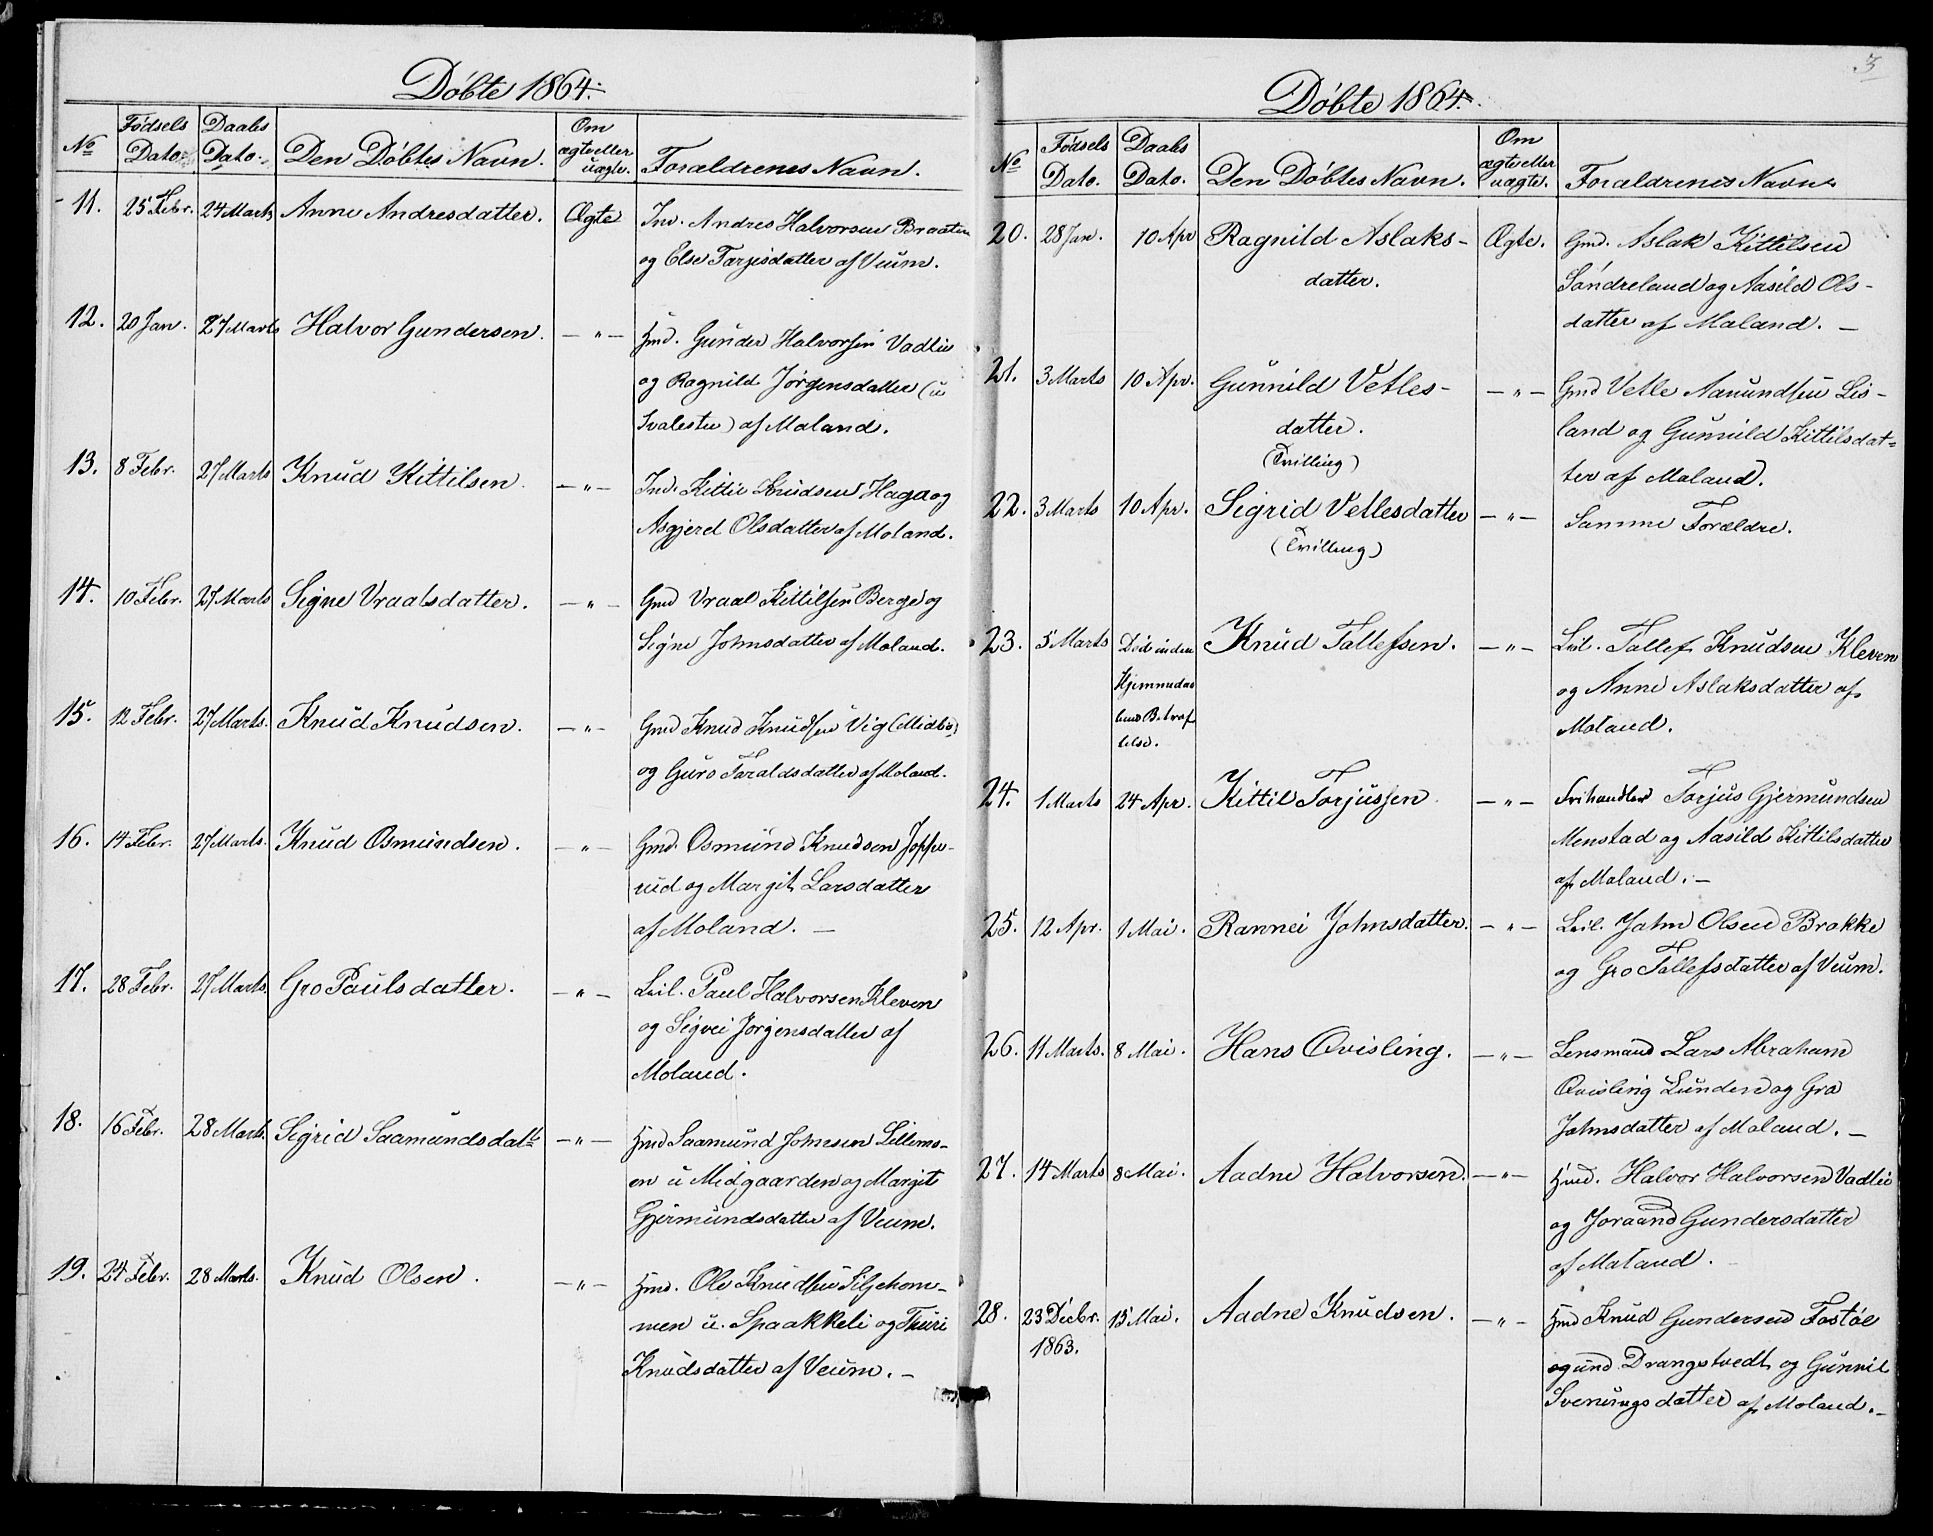 Döbte 1864.
No
Fødsels Dato.
Daabs Dato.
Den Döbtes Navn.
Om ægte eller uægte.
Forældrenes Navn.
11. 25 Febr. 24 Marts Anne Andresdatter. Ægte Ind. Andres Halvorsen Braaten
og Else Tarjeisdatter af Veum.
12. 20 Jan. 27 Marts Halvor Gundersen. —"— Hmd. Gunder Halvorsen Vadlie
og Ragnild Jørgensdatter (u
Svalestu) af Moland.
13. 8 Febr. 27 Marts Knud Kittilsen. —"— Ind. Kittil Knudsen Haga og
Asgjerd Olsdatter af Moland.
14. 10 Febr. 27 Marts Signe Vraalsdatter. —"— Gmd Vraal Kittilsen Berge og
Signe Johnsdatter af Moland.
15. 12 Febr. 27 Marts. Knud Knudsen. —"— Gmd Knud Knudsen Vig (Midbö)
og Guro Taraldsdatter af Moland.
16. 14 Febr. 27 Marts. Knud Osmundsen. —"— Gmd. Osmund Knudsen Joppe-
rud og Margit Larsdatter
af Moland. —
17. 28 Febr. 27 Marts. Gro Paulsdatter. —"— Leil. Paul Halvorsen Kleven
og Sigvei Jørgensdatter af
Moland.
18. 16 Febr. 28 Marts. Sigrid Saamundsdattr —"— Hmd Saamund Johnsen Lillems-
en u Midgaarden og Margit
Gjermundsdatter af Veum.
19. 24 Febr. 28 Marts. Knud Olsen. —"— Hmd. Ole Knudsen Siljehom-
men u. Spaakkeli og Thuri
Knudsdatter af Veum. —
3
Döbte 1864.
No
Fødsels Dato.
Daabs Dato.
Den Döbtes Navn.
Om ægte eller uægte.
Forældrenes Navn.
20. 28 Jan. 10 Apr Ragnild Aslaks- Ægte. Gmd. Aslak Kittilsen
datter. Söndreland og Aasild Ols-
datter af Moland. —
21. 3 Marts 10 Apr. Gunnild Vetles- —"— Gmd Vetle Aanundsen Lis-
datter. land og Gunnild Kittilsdat-
(Tvilling) ter af Moland.
22. 3 Marts 10 Apr. Sigrid Vetlesdatter —"— Samme Forældre.
(Tvilling)
23. 5 Marts Död inden Knud Tallefsen. —"— Leil. Tallef Knudsen Kleven
Hjemmedaa og Anne Aslaksdatter af
bens Bekræf Moland.
telse.
24. 1 Marts 24 Apr. Kittil Torjussen. —"— Frihandler Torjus Gjermundsen
Menstad og Aasild Kittilsdatter
af Moland. —
25. 12 Apr. 1 Mai. Rannei Johnsdatter. —"— Leil. John Olsen Brokke
og Gro Tallefsdatter af Veum.
26. 11 Marts. 8 Mai. Hans Qvisling. —"— Lensmand Lars Abraham
Qvisling Lunden og Gro
Johnsdatter af Moland. —
27. 14 Marts 8 Mai. Aadne Halvorsen. —"— Hmd. Halvor Halvorsen Vadlie
og Joraand Gundersdatter
af Moland.
28. 23 Decbr. 15 Mai. Aadne Knudsen. —"— Hmd Knud Gundersen Fostöe
1863. og und Drangstvedt og Gunnil
Sveinungsdatter af Moland. —